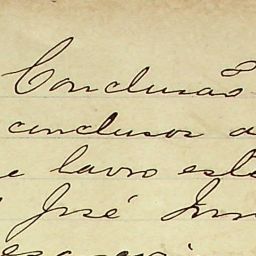 Conclusão
conclusos a
e lavro este
José